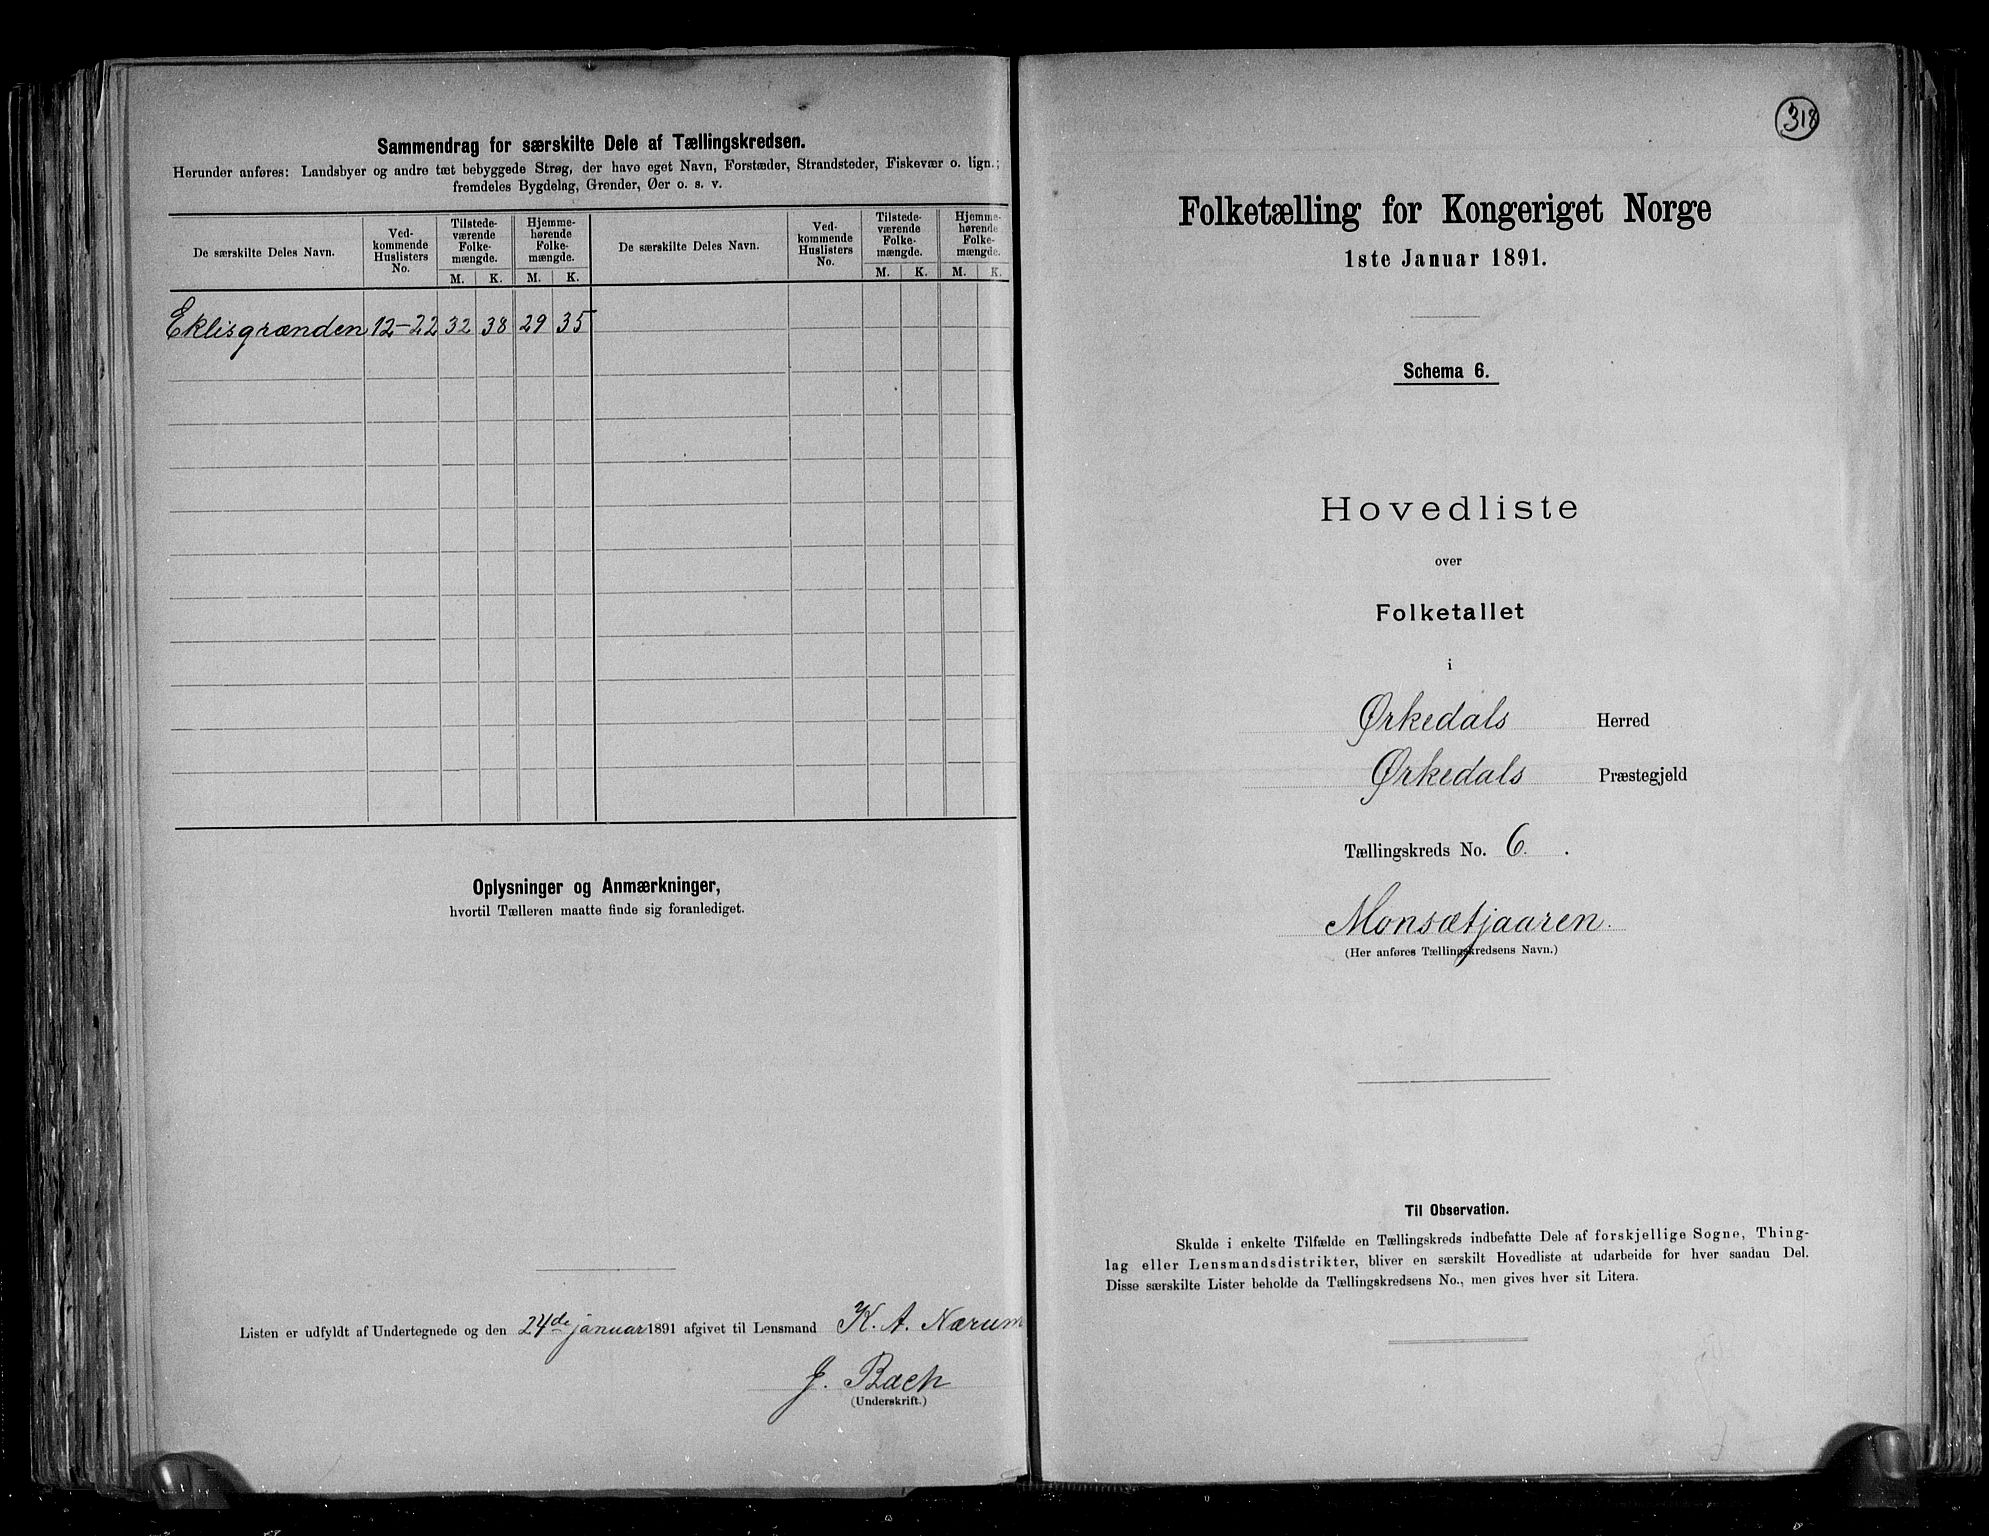 Sammendrag for særskilte Dele af Tællingskredsen.
Herunder anføres: Landsbyer og andre tæt bebyggede Strøg, der have eget Navn, Forstæder, Strandsteder, Fiskevær o. lign.;
fremdeles Bygdelag, Grender, Øer o. s. v.
De særskilte Deles Navn.
Ved-
kommende
Huslisters
No.
Tilstede-
værende
Folke-
mængde.
M. K.
Hjemme-
hørende
Folke-
mængde.
M. K.
De særskilte Deles Navn.
Ved-
kommende
Huslisters
No.
Tilstede-
værende
Folke-
mængde.
M. K.
Hjemme-
hørende
Folke-
mængde.
M. K.
Eklisgrænden 12-22 32 38 29 35
Oplysninger og Anmærkninger,
hvortil Tælleren maatte finde sig foranlediget.
Listen er udfyldt af Undertegnede og den 24de januar 1891 afgivet til Lensmand K. A. Nærum
J. Bach
(Underskrift.)
318
Folketælling for Kongeriget Norge
1ste Januar 1891.
Schema 6.
Hovedliste
over
Folketallet
i
Ørkedals Herred
Ørkedals Præstegjeld
Tællingskreds No. 6.
Monsætjaaren.
(Her anføres Tællingskredsens Navn.)
Til Observation.
Skulde i enkelte Tilfælde en Tællingskreds indbefatte Dele af forskjellige Sogne, Thing-
lag eller Lensmandsdistrikter, bliver en særskilt Hovedliste at udarbeide for hver saadan Del.
Disse særskilte Lister beholde da Tællingskredsens No., men gives hver sit Litera.